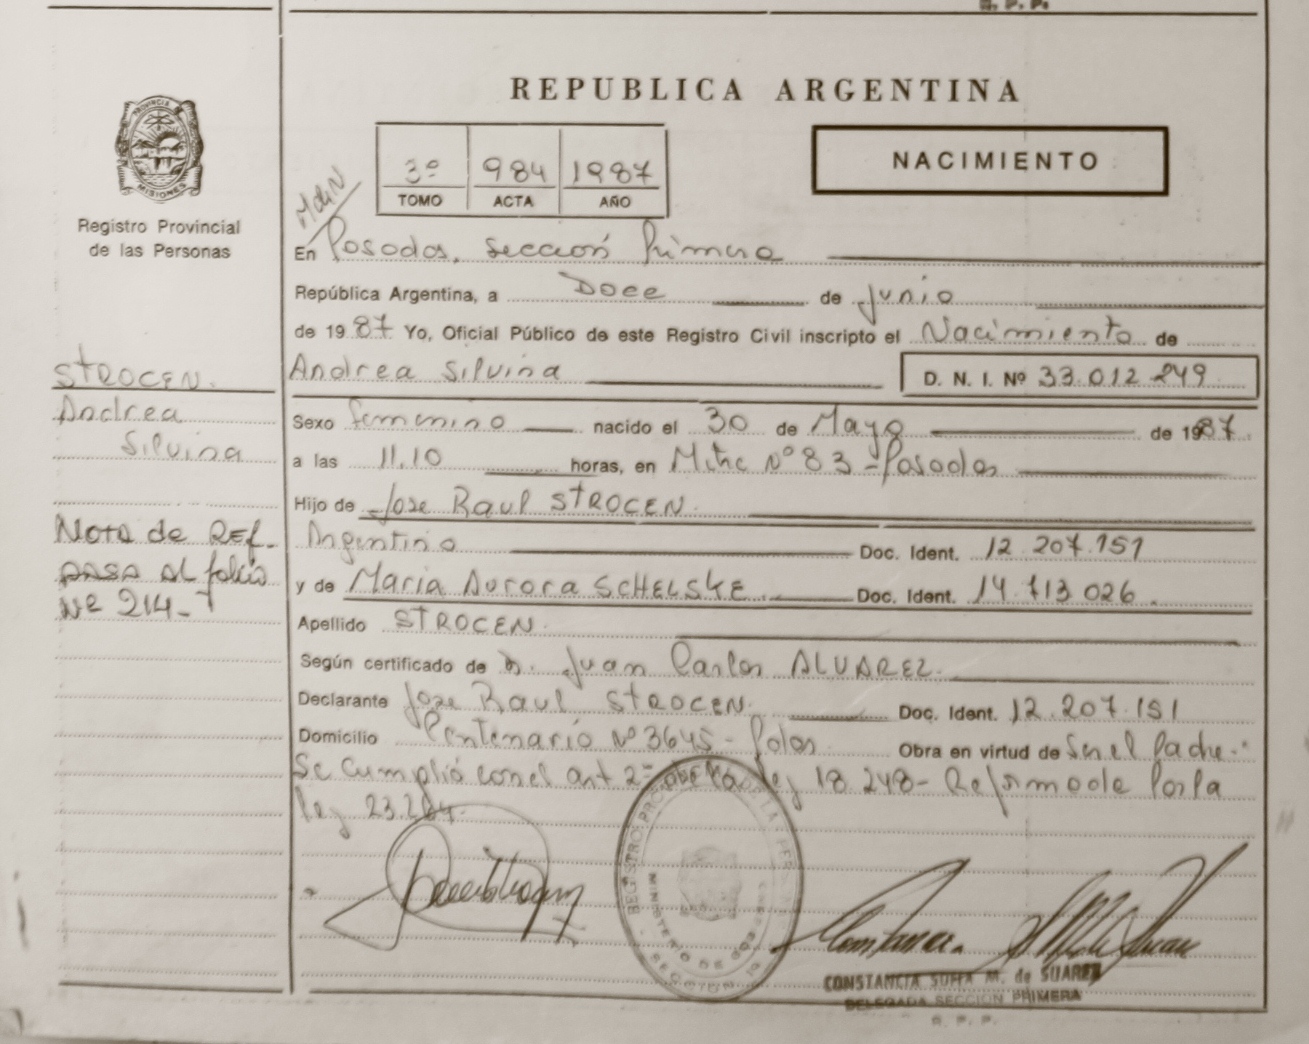 R. P. P.
REPUBLICA ARGENTINA
PROVINCIA
MISIONES
3º 984 1987
TOMO ACTA AÑO
NACIMIENTO
Registro Provincial
de las Personas
En Posadas, Sección Primera
República Argentina, a Doce de Junio
de 1987 Yo, Oficial Público de este Registro Civil inscripto el Nacimiento de
Andrea Silvina D. N. I. Nº 33.012.849
STROCEN.
Andrea
Silvina
Sexo femenino nacido el 30 de Mayo de 1987.
a las 11,10 horas, en Mitre Nº 83 - Posadas
Hijo de Jose Raul STROCEN.
Argentino Doc. Ident. 12.207.151
y de Maria Aurora SCHELSKE Doc. Ident. 14.713.026.
Nota de Ref.
pasa al folio
Nº 214-
Apellido STROCEN.
Según certificado de D. Juan Carlos ALVAREZ.
Declarante Jose Raul STROCEN. Doc. Ident. 12.207.151
Domicilio Centenario Nº 3645 - Obra en virtud de Ser el Padre.-
Se Cumplió con el art 2º de la ley 18.248- Reformada Por la
ley 23.264.
REGISTRO PROV DE LAS PERSONAS
MINISTERIO DE GOB
CONSTANCIA SUFIA M. de SUAREZ
DELEGADA SECCION PRIMERA
R. P. P.